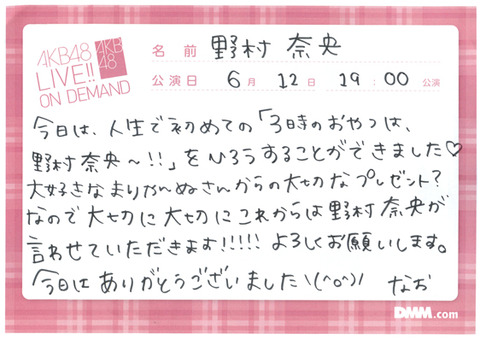 AKB48
LIVE!!
ON DEMAND
AKB
48
名前 野村 奈央
公演日 6月 12日 19:00 公演
今日は、人生で初めての「3時のおやつは、
野村奈央～!!」をひろうすることができました♡
大好きなまりか～ぬさんからの大切なプレゼント?
なので大切に大切にこれからは野村奈央が
言わせていただきます!!!!! よろしくお願いします。
今日はありがとうございました\(^o^)/ なお
DMM.com